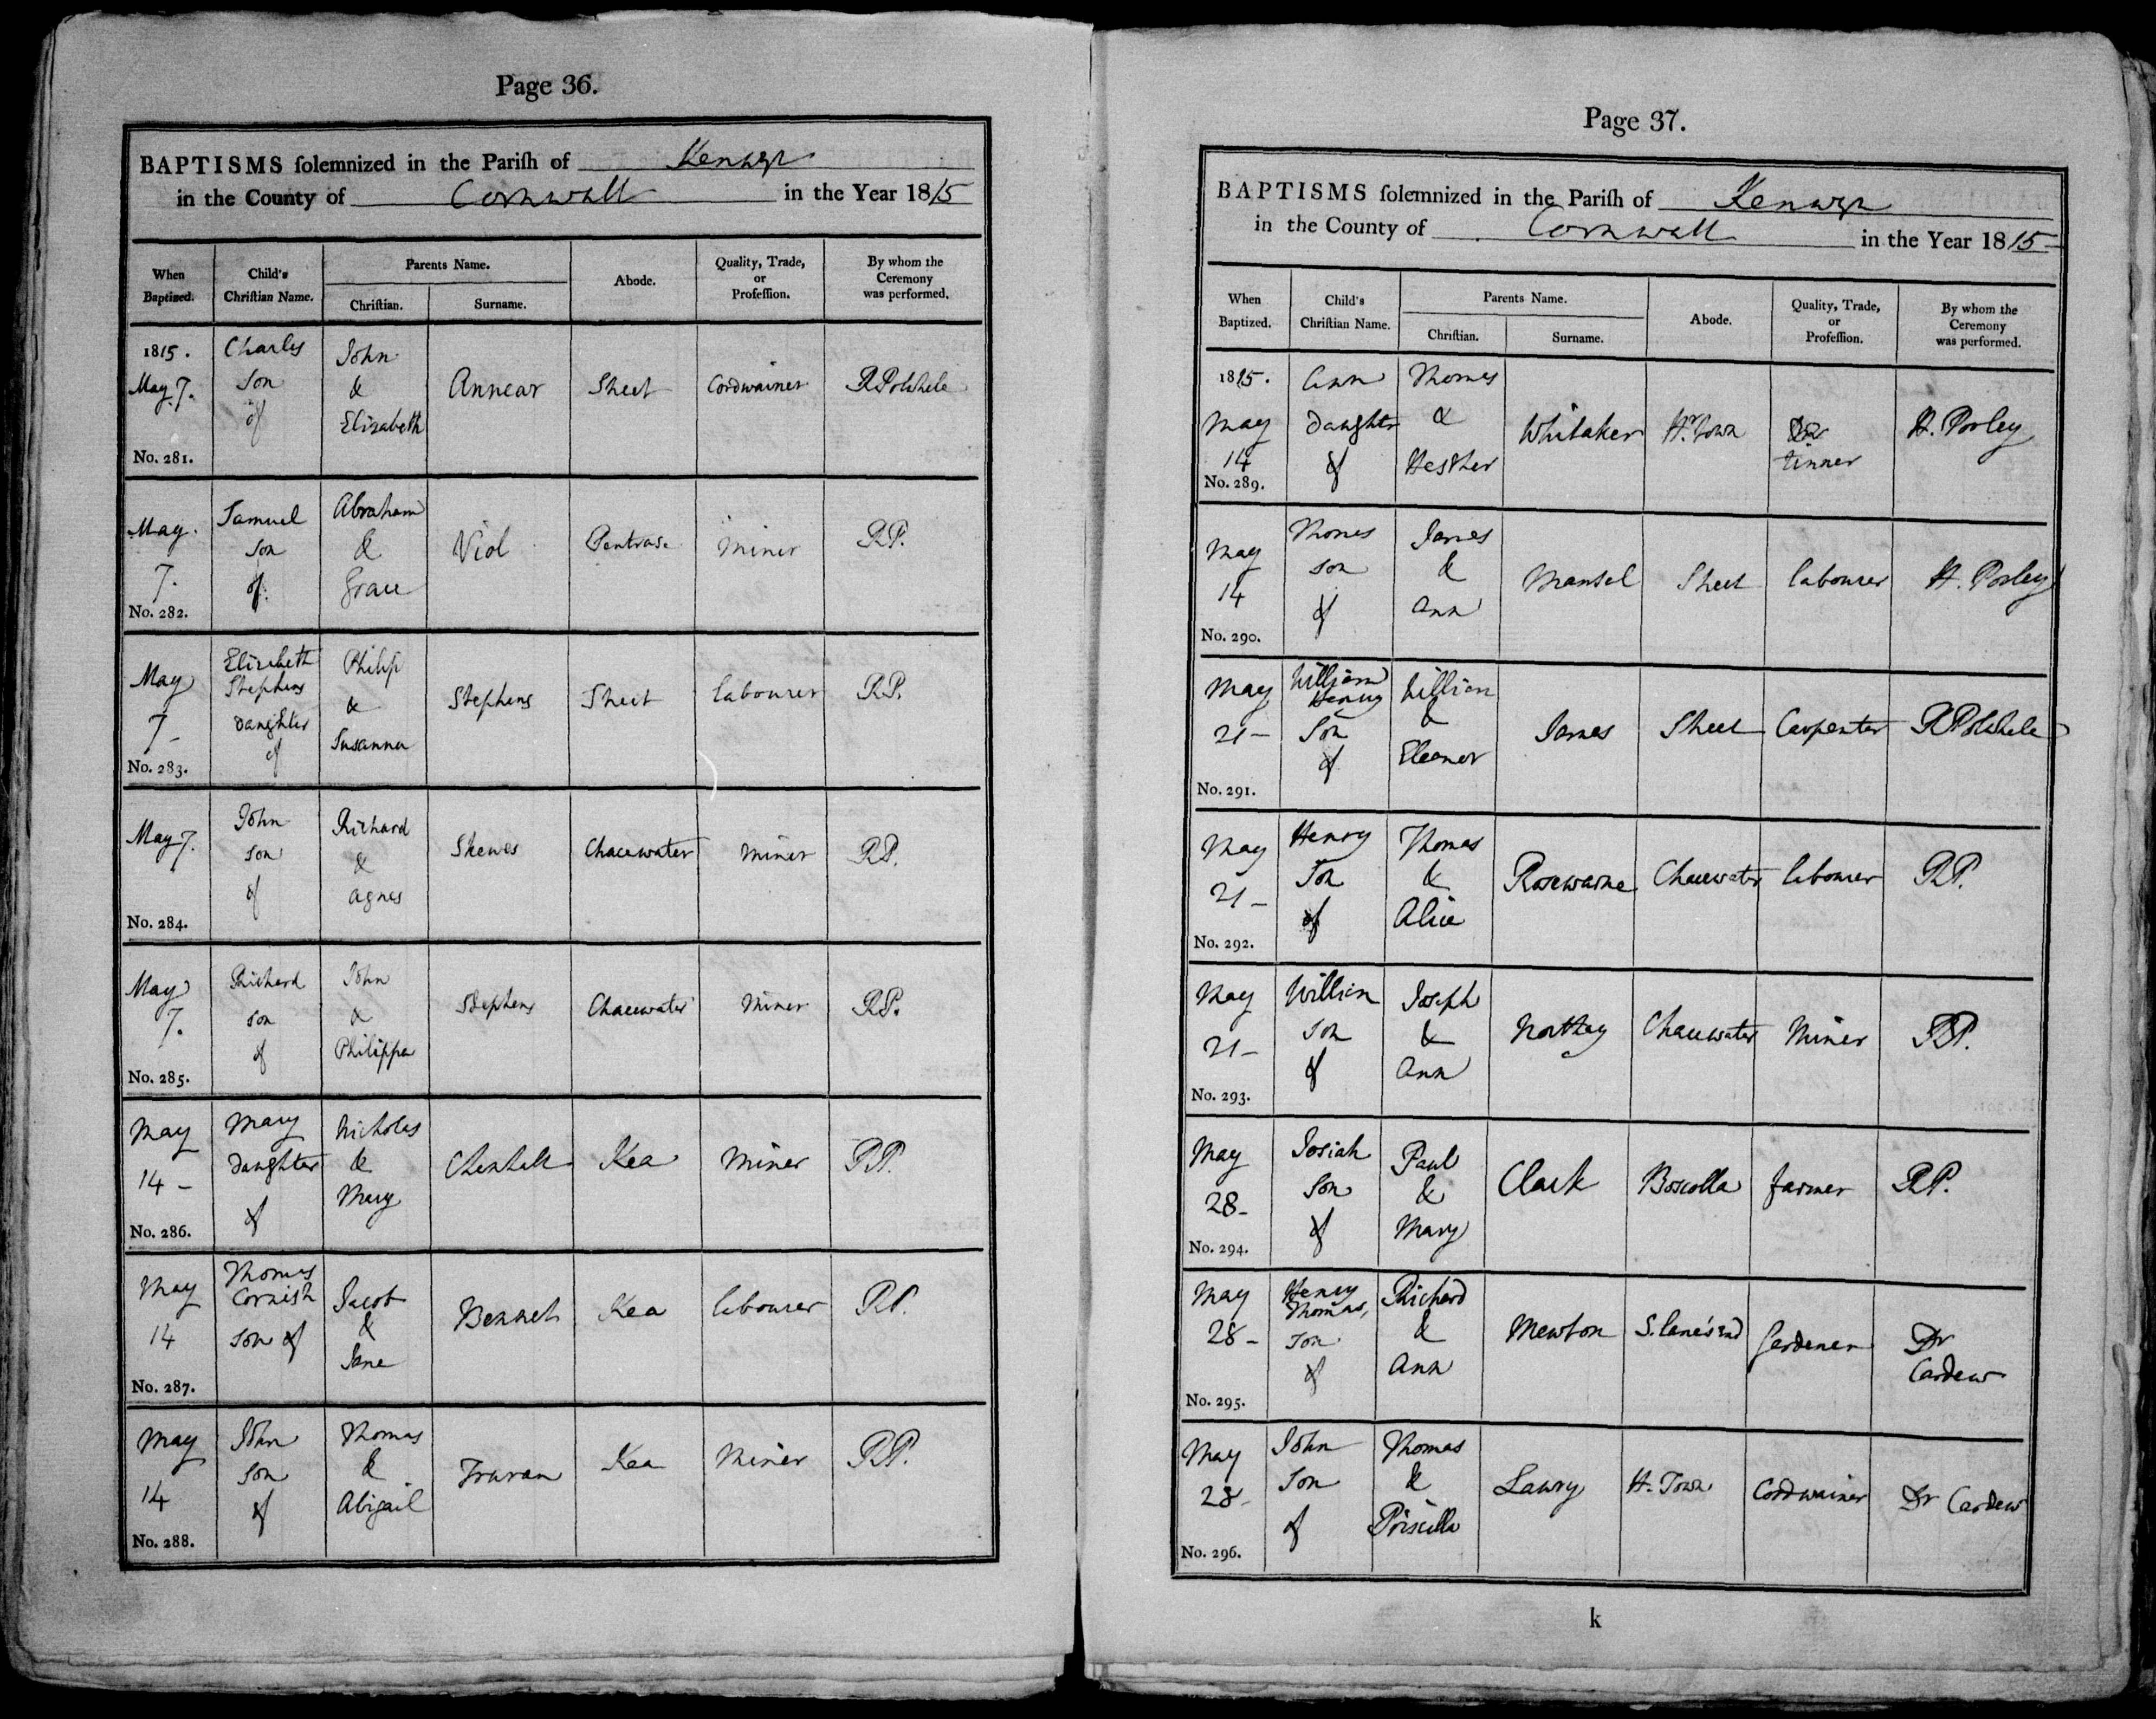 Page 36.
BAPTISMS ſolemnized in the Pariſh of Kenwyn
in the County of Cornwall in the Year 1815
When Baptized. Child's Chriſtian Name. Parents Name. Chriſtian. Surname. Abode. Quality, Trade, or Profeſſion. By whom the Ceremony was performed.
1815. May 7. Charles son of John & Elizabeth Annear Street Cordwainer RPolwhele
No. 281.
May 7. Samuel son of Abraham & Grace Viol Penhrose miner RP.
No. 282.
May 7 Elizabeth Stephens Daughter of Philip & Susanna Stephens Street labourer RP.
No. 283.
May 7. John son of Richard & Agnes Skewes Chacewater miner RP.
No. 284.
May 7. Richard son of John & Philippa Stephens Chacewater miner RP.
No. 285.
May 14 Mary Daughter of Nicholas & Mary Chenhall Kea miner RP.
No. 286.
May 14 Thomas Cornish son of Jacob & Jane Bennet Kea labourer RP.
No. 287.
May 14 John son of Thomas & Abigail Truran Kea miner RP.
No. 288.
Page 37.
BAPTISMS ſolemnized in the Pariſh of Kenwyn
in the County of Cornwall in the Year 1815
When Baptized. Child's Chriſtian Name. Parents Name. Chriſtian. Surname. Abode. Quality, Trade, or Profeſſion. By whom the Ceremony was performed.
1815. May 14 Ann Daughter of Thomas & Hesther Whitaker Hr. Town tinner H. Porley
No. 289.
May 14 Thomas son of James & Ann Mansel Street labourer H. Porley
No. 290.
May 21 William Henry Son of William & Eleanor James Street Carpenter RPolwhele
No. 291.
May 21 Henry Son of Thomas & Alice Rosewarne Chacewater labourer RP.
No. 292.
May 21 William son of Joseph & Ann Northey Chacewater miner RP.
No. 293.
May 28 Josiah Son of Paul & Mary Clark Boscolla farmer RP.
No. 294.
May 28 Henry Thomas, son of Richard & Ann Mewton S. Lane's End Gardener Dr Cardew
No. 295.
May 28 John Son of Thomas & Priscilla Lawry H. Town Cordwainer Dr Cardew
No. 296.
k